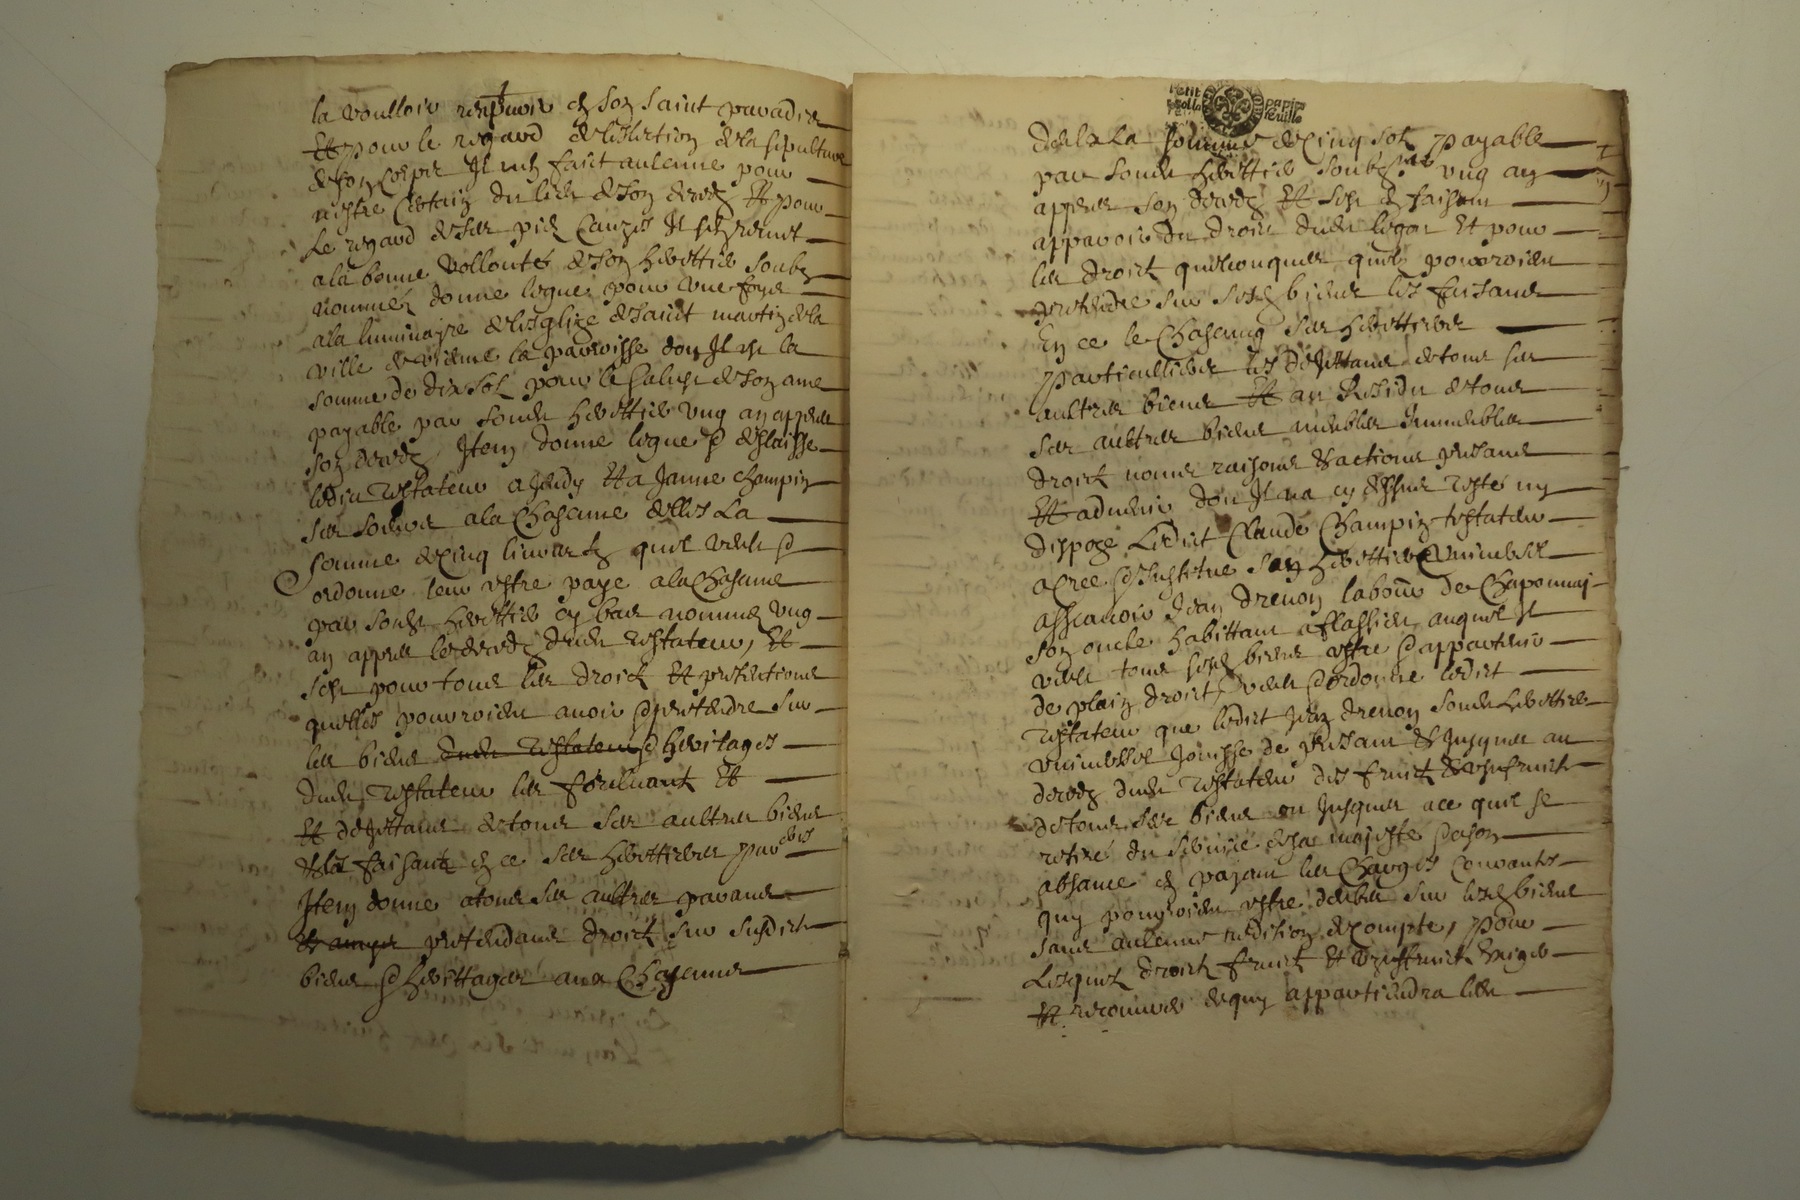 la voulloir recepvoir en son saint paradis
Et pour le regard de leslection de la sepulture
de son corps Il nen faict aulcune pour
nestre certain du lieu de son deced Et pour
Le regard de ses pies causes Il sen remet
a la bonne vollonté de son herettier soubz
nommé donne legue pour une foys
a la luminayre de lesglize de saint martin de la
ville de vienne la parroisse don Il est la
somme de dix solz pour le salut de son ame
payable par sondit herettier ung an appres
son deced Item donne legue et delaisse
ledit testateur a Jandy Et a Janne Champin
ses soeurs a la Chascune delles La
somme de cinq livres tz quil veult et
ordonne leur estre paye a la Chascune
par sondit herettier cy bas nommé ung
an appres le deced dudit testateur, Et
sest pour tous les droictz Et pretentions
quelles pourroient avoir et pretendre sur
les biens dudit testateur et heritages
dudit testateur les forcluant Et
Et dejettant de tous ses aultres biens
Et les faisant en ce ses herettieres par elles
Item donne a tous ses aultres parans
pretendans droict sur susdictz
biens et herittages aux Chascune
Petit papier
feuille
de la La somme de cinq solz payable
par sondit herettier soubz nommé ung an
appres son deced Et sest en faisant
apparoir du droict dudit legat Et pour
les droictz quelconques quilz pourroient
pretendre sur sesd biens les faisans
En ce le Chascung ses herettieres
particullieres les dejettans de tous ses
aultres biens Et au Residu de tous
ses aultres biens meubles Immeubles
droictz noms raisons et actions presans
Et advenir don Il na cy dessus testé ny
dispozé Ledict Claude Champin testateur
a Cree et Institue son herettier Universel
asscavoir Jean Drevon labour de Chaponnay
son oncle habittant a flassieu auquel Il
veult tous sesd biens estre et appartenir
de plain droict, veult et ordonne ledict
testateur que ledict Jean Drevon sondit herettier
universel Jouisse de presant et Jusques au
deced dudit testateur des fruictz et usufruictz
de tous ses biens ou Jusques a ce quil se
retire du service de sa majeste et a son
absance en payant les Charges Courantes
quy pourroient estre deubes sur lesd biens
sans aulcune reddition de compte, pour
Lesquelz droictz fruictz Et usufruictz Exiger
Et recouvrer de quy appartiendra les